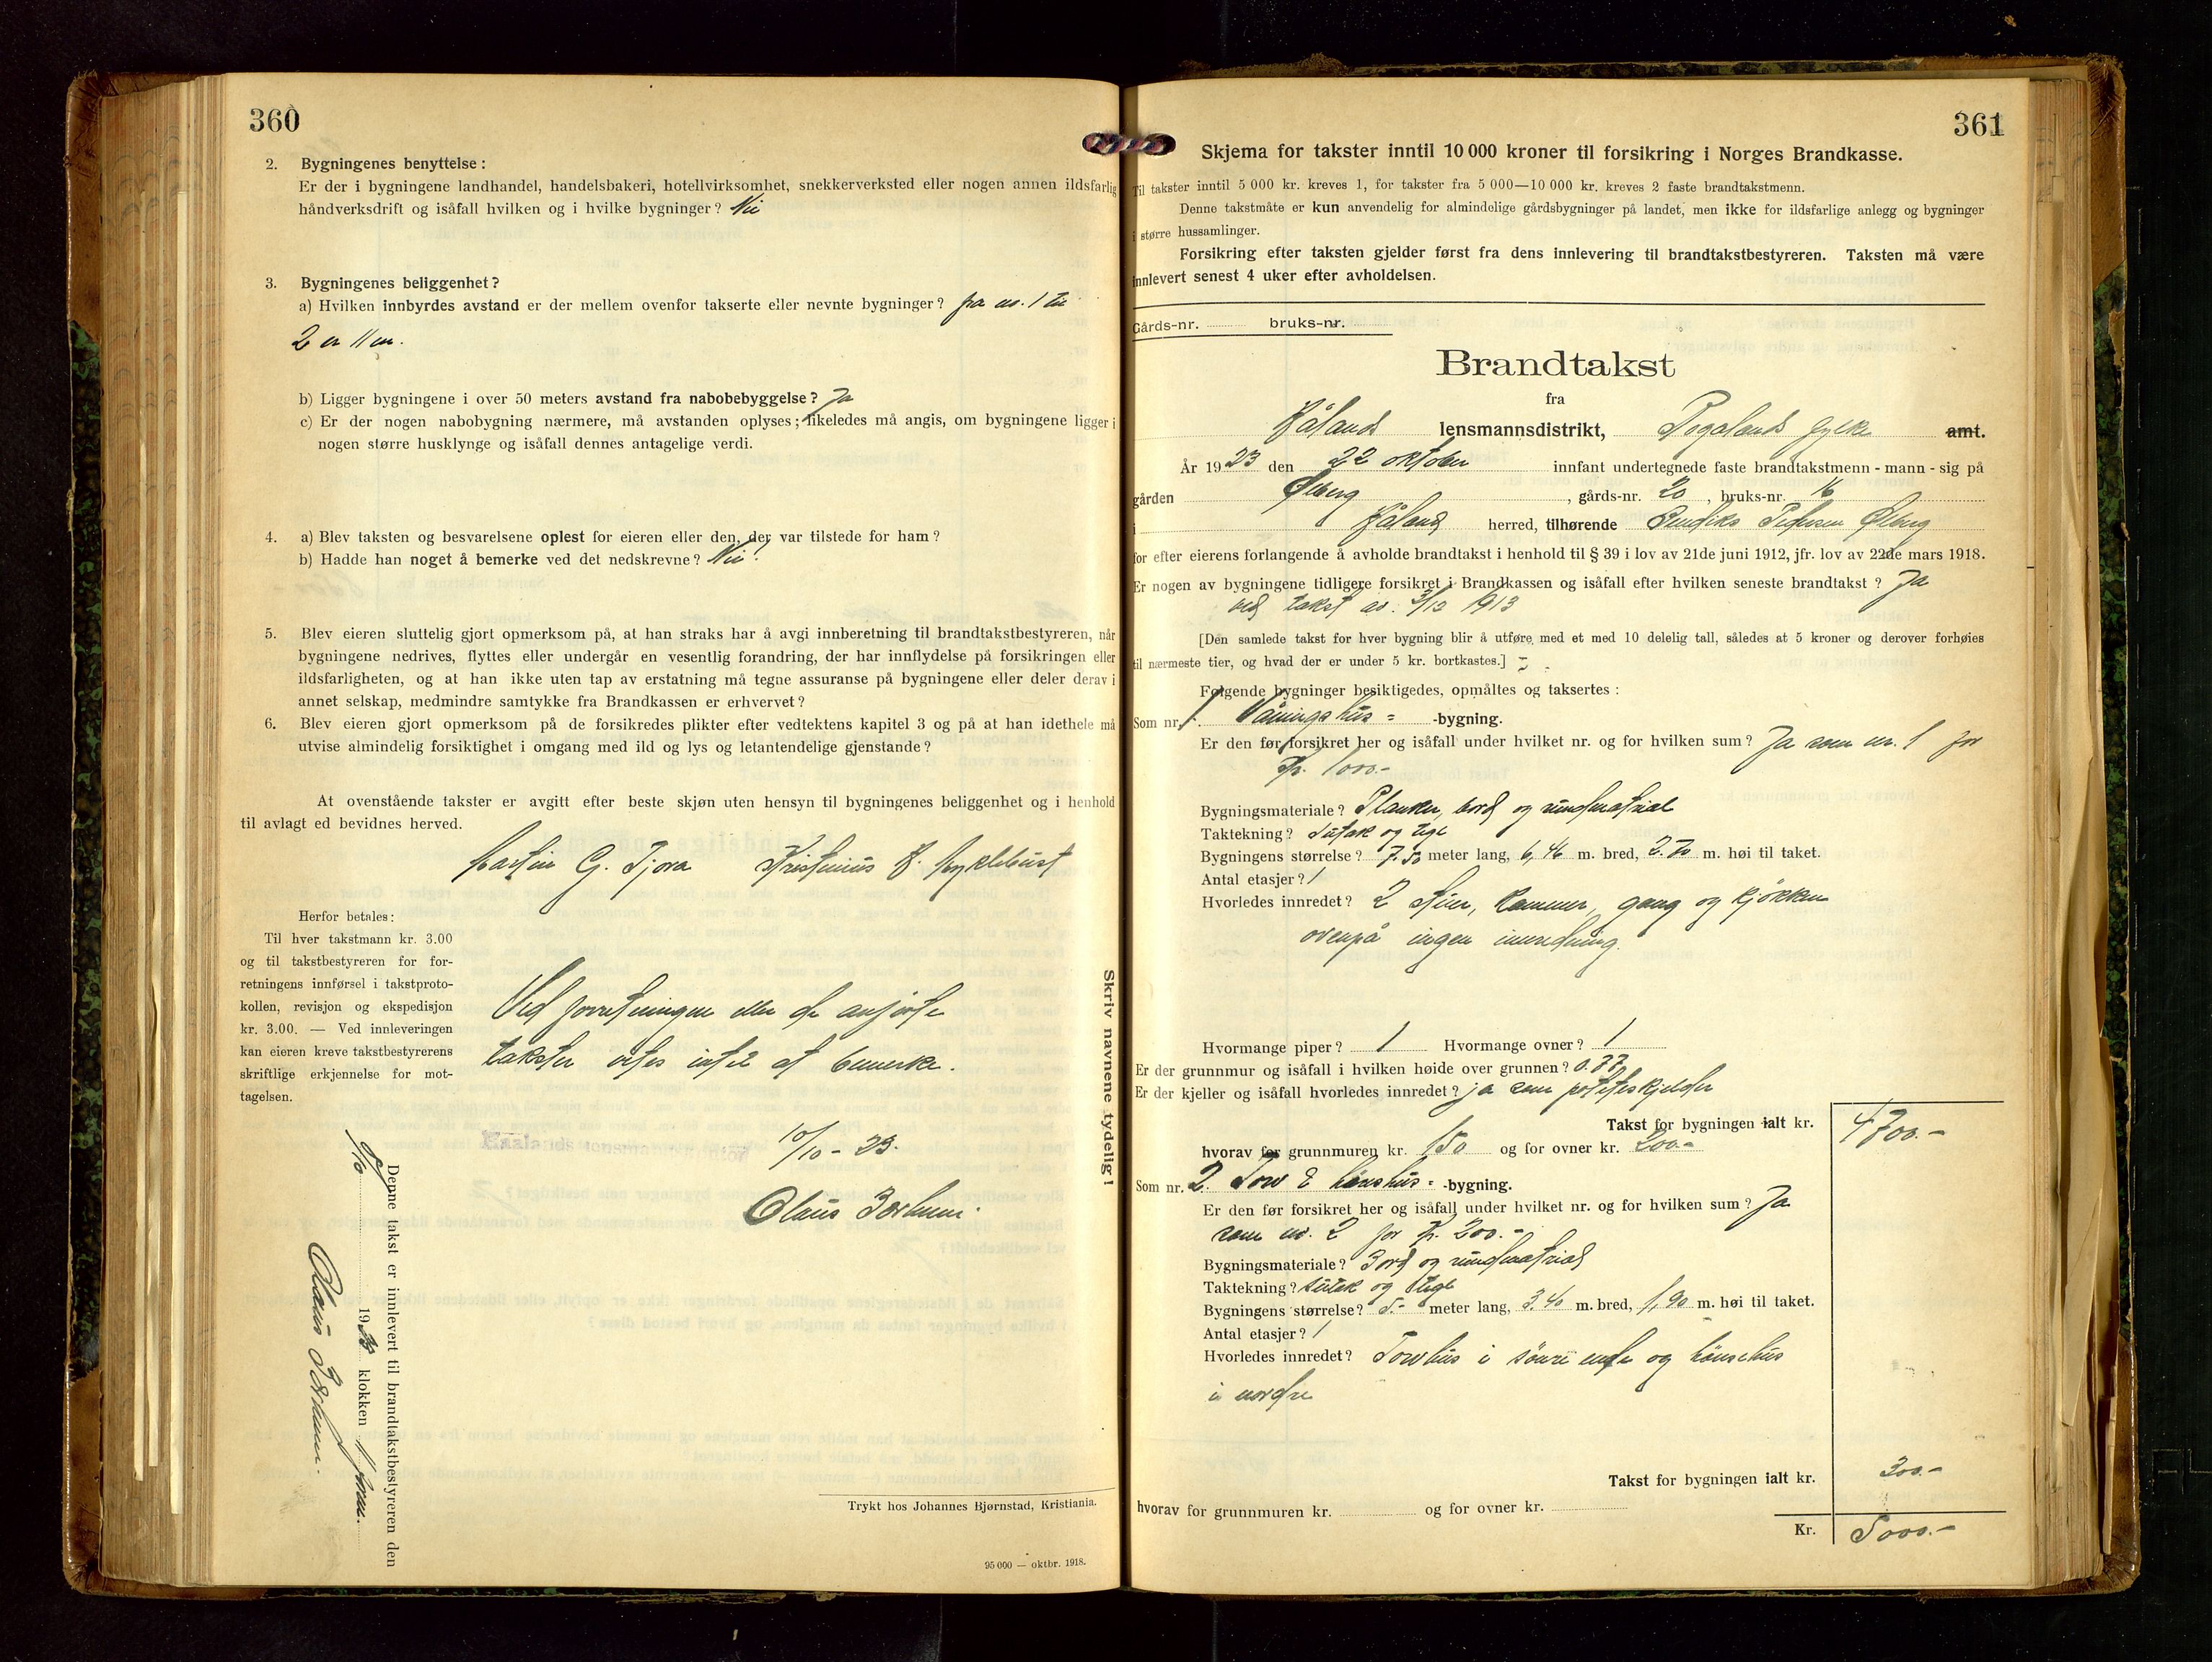 360
2. Bygningenes benyttelse :
Er der i bygningene landhandel, handelsbakeri, hotellvirksomhet, snekkerverksted eller nogen annen ildsfarlig
håndverksdrift og isåfall hvilken og i hvilke bygninger? Nei
3. Bygningenes beliggenhet?
a) Hvilken innbyrdes avstand er der mellem ovenfor takserte eller nevnte bygninger? fra nr. 1 til
2 er 11 m.
b) Ligger bygningene i over 50 meters avstand fra nabobebyggelse? Ja
c) Er der nogen nabobygning nærmere, må avstanden oplyses; likeledes må angis, om bygningene ligger i
nogen større husklynge og isåfall dennes antagelige verdi.
4. a) Blev taksten og besvarelsene oplest for eieren eller den, der var tilstede for ham?
b) Hadde han noget å bemerke ved det nedskrevne? Nei!
5. Blev eieren sluttelig gjort opmerksom på, at han straks har å avgi innberetning til brandtakstbestyreren, når
bygningene nedrives, flyttes eller undergår en vesentlig forandring, der har innflydelse på forsikringen eller
ildsfarligheten, og at han ikke uten tap av erstatning må tegne assuranse på bygningene eller deler derav i
annet selskap, medmindre samtykke fra Brandkassen er erhvervet?
6. Blev eieren gjort opmerksom på de forsikredes plikter efter vedtektens kapitel 3 og på at han idethele må
utvise almindelig forsiktighet i omgang med ild og lys og letantendelige gjenstande?
At ovenstående takster er avgitt efter beste skjøn uten hensyn til bygningenes beliggenhet og i henhold
til avlagt ed bevidnes herved.
Martin G. Tjora Kristinius K. Myklebust
Herfor betales:
Til hver takstmann kr. 3.00
og til takstbestyreren for for-
retningens innførsel i takstproto-
kollen, revisjon og ekspedisjon
kr. 3.00. — Ved innleveringen
kan eieren kreve takstbestyrerens
skriftlige erkjennelse for mot-
tagelsen.
Ved forretningen eller de anførte
takster vites intet at bemerke.
Haalands lensmannskontor /10 - 23.
Olaus
Denne takst er innlevert til brandtakstbestyreren den
/10 1923 klokken 11 form.
Olaus
Skriv navnene tydelig!
Trykt hos Johannes Bjørnstad, Kristiania.
95 000 — oktbr. 1918.
361
Skjema for takster inntil 10 000 kroner til forsikring i Norges Brandkasse.
Til takster inntil 5 000 kr. kreves 1, for takster fra 5 000—10 000 kr. kreves 2 faste brandtakstmenn.
Denne takstmåte er kun anvendelig for almindelige gårdsbygninger på landet, men ikke for ildsfarlige anlegg og bygninger
i større hussamlinger.
Forsikring efter taksten gjelder først fra dens innlevering til brandtakstbestyreren. Taksten må være
innlevert senest 4 uker efter avholdelsen.
Gårds-nr. bruks-nr.
Brandtakst
fra
Håland lensmannsdistrikt, Rogalands fylke amt.
År 1923 den 22 oktober innfant undertegnede faste brandtakstmenn - mann - sig på
gården Ølberg, gårds-nr. 20, bruks-nr. 16
i Håland herred, tilhørende Bendiks Pedersen Ølberg
for efter eierens forlangende å avholde brandtakst i henhold til § 39 i lov av 21de juni 1912, jfr. lov av 22de mars 1918.
Er nogen av bygningene tidligere forsikret i Brandkassen og isåfall efter hvilken seneste brandtakst ? Ja
ved takst av. 3/12 1913
[Den samlede takst for hver bygning blir å utføre med et med 10 delelig tall, således at 5 kroner og derover forhøies
til nærmeste tier, og hvad der er under 5 kr. bortkastes.]
Følgende bygninger besiktigedes, opmåltes og taksertes :
Som nr. 1. Våningshus = -bygning.
Er den før forsikret her og isåfall under hvilket nr. og for hvilken sum? Ja som nr. 1 for
Kr. 1000.-
Bygningsmateriale? Planker, bord og rundmaterial
Taktekning? Sutak og tegl
Bygningens størrelse? 7.50 meter lang, 6,46 m. bred, 2.70 m. høi til taket.
Antal etasjer? 1
Hvorledes innredet? 2 stuer, kammer, gang og kjøkken
ovenpå ingen innredning.
Hvormange piper? 1 Hvormange ovner? 1
Er der grunnmur og isåfall i hvilken høide over grunnen? 0.77
Er der kjeller og isåfall hvorledes innredet? ja som poteteskjelder
Takst for bygningen ialt kr. 4700.-
hvorav for grunnmuren kr. 150 og for ovner kr. 200.-
Som nr. 2. Torv & hønshus = -bygning.
Er den før forsikret her og isåfall under hvilket nr. og for hvilken sum? Ja
som nr. 2 for Kr. 200.-
Bygningsmateriale? Bord og rundmaterial
Taktekning? sutak og tegl
Bygningens størrelse? 5.- meter lang, 3.40 m. bred, 1,90 m. høi til taket.
Antal etasjer? 1
Hvorledes innredet? Torvhus i søndre ende og hønsehus
i nordre
Takst for bygningen ialt kr. 300.-
hvorav for grunnmuren kr. og for ovner kr.
Kr. 5000.-